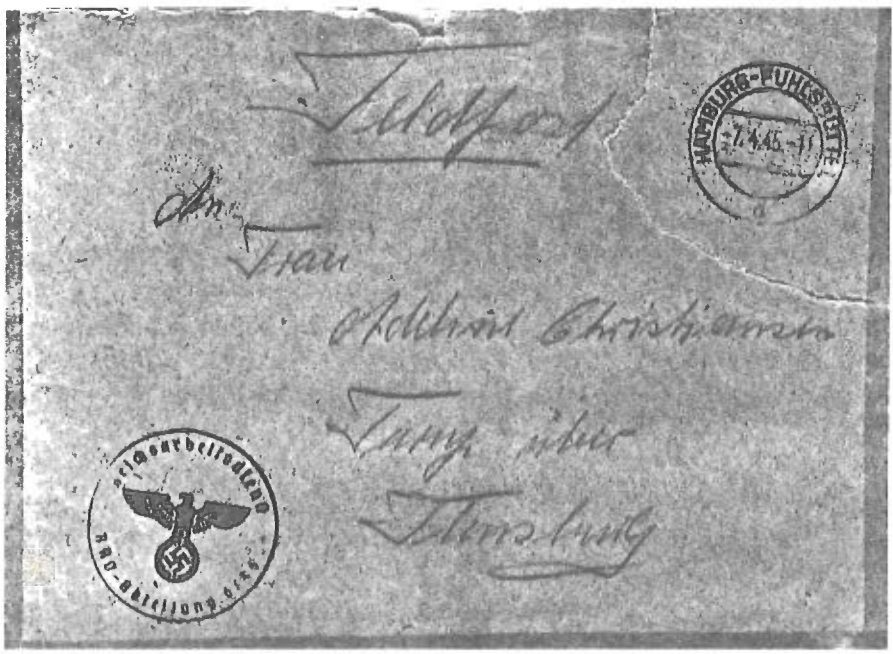 Feldpost
HAMBURG-FUHLSBÜTTEL
7.4.45.-11
d
An
Frau
Christiansen
über
Flensburg
Reichsarbeitsdienst
RAD-Abteilung